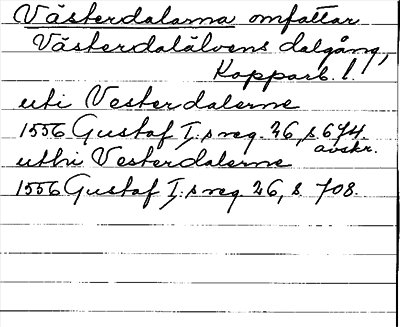 Västerdalarna omfattar
Västerdalälvens dalgång,
Kopparb. l.
uti Vesterdalerne
1556 Gustaf I:s reg. 26, s 674.
avskr.
uthi Vesterdalerne
1556 Gustaf I:s reg. 26, s. 708.